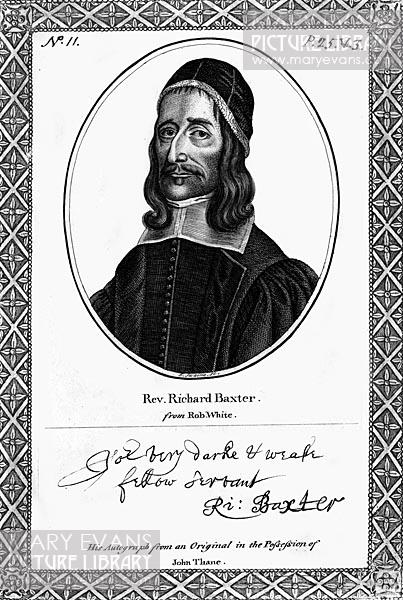 PICTURE LIBRARY
www.maryevans.com
No. 11.
P. 25. V. 3.
Rev. Richard Baxter.
from Rob. White.
Yor very darke & weake
fellow servant
Ri: Baxter
His Autograph from an Original in the Possession of
John Thane.
MARY EVANS
PICTURE LIBRARY